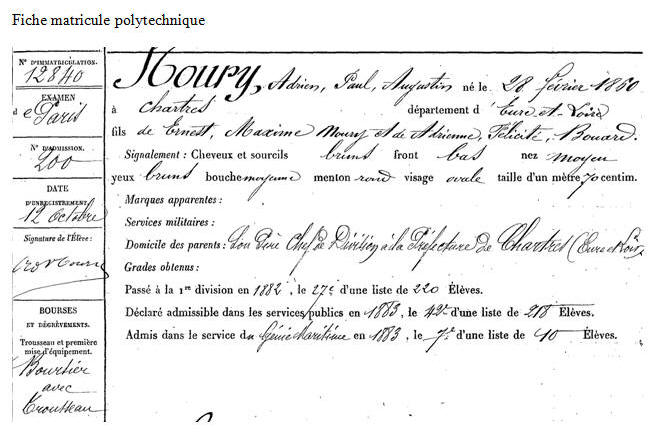 Fiche matricule polytechnique
N° D'IMMATRICULATION.
12840
EXAMEN
de Paris
N° D'ADMISSION.
200
DATE
D'ENREGISTREMENT.
12 Octobre
Signature de l'Élève:
BOURSES
ET DÉGRÈVEMENTS.
Trousseau et première
mise d'équipement.
Boursier
avec
Trousseau
Moury, Adrien, Paul, Augustin né le 28 février 1860
à Chartres département d'Eure et Loire
fils de Ernest, Maxime Moury et de Adrienne, Félicité, Bouard.
Signalement : Cheveux et sourcils bruns front bas nez moyen
yeux bruns bouche moyenne menton rond visage ovale taille d'un mètre 70 centim.
Marques apparentes :
Services militaires :
Domicile des parents : Son Père Chef de Division à la Préfecture de Chartres (Eure et Loir)
Grades obtenus :
Passé à la 1re division en 1882, le 27e d'une liste de 220 Élèves.
Déclaré admissible dans les services publics en 1883, le 42e d'une liste de 218 Élèves.
Admis dans le service du Génie Maritime en 1883, le 7e d'une liste de 10 Élèves.